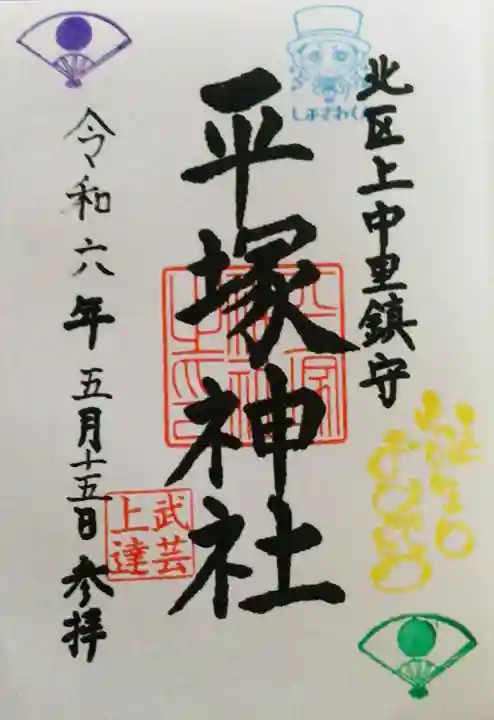 北区上中里鎮守
平塚神社
令和六年五月十五日参拝
武芸
上達
しぶさわくん